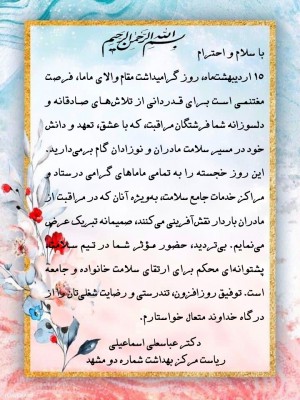 بسم الله الرحمن الرحیم
با سلام و احترام
۱۵ اردیبهشت‌ماه، روز گرامیداشت مقام والای ماما، فرصت
مغتنمی است برای قدردانی از تلاش‌های صادقانه و
دلسوزانه شما فرشتگان مراقبت، که با عشق، تعهد و دانش
خود در مسیر سلامت مادران و نوزادان گام برمی‌دارید.
این روز خجسته را به تمامی ماماهای گرامی در ستاد و
مراکز خدمات جامع سلامت، به‌ویژه آنان که در مراقبت از
مادران باردار نقش‌آفرینی می‌کنند، صمیمانه تبریک عرض
می‌نمایم. بی‌تردید، حضور مؤثر شما در تیم سلامت،
پشتوانه‌ای محکم برای ارتقای سلامت خانواده و جامعه
است. توفیق روزافزون، تندرستی و رضایت شغلی‌تان را از
درگاه خداوند متعال خواستارم.
دکتر عباسعلی اسماعیلی
ریاست مرکز بهداشت شماره دو مشهد